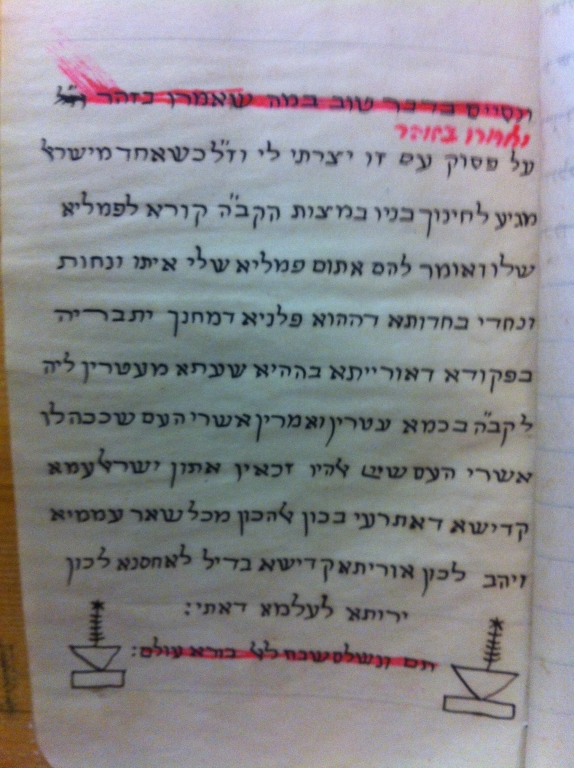 ונסיים בדבר טוב במה שאמרו בזהר וז״ל
ואמרו בזוהר
על פסוק עם זו יצרתי לי וז״ל כשאחד מישראל
מגיע לחינוך בניו במצות הקב״ה קורא לפמליא
שלו ואומר להם אתום פמליא שלי איתו ונחות
ונחדי בחדותא דההוא פלניא דמחנך ית בריה
בפקודא דאורייתא בההיא שעתא מעטרין ליה
לקב״ה בכמא עטרין ואמרין אשרי העם שככה לו
אשרי העם שיי׳ אלהיו זכאין אתון ישראל עמא
קדישא דאתרעי בכון אלהכון מכל שאר עממיא
ויהב לכון אוריתא קדישא בדיל לאחסנא לכון
ירותא לעלמא דאתי:
תם ונשלם שבח לאל בורא עולם: